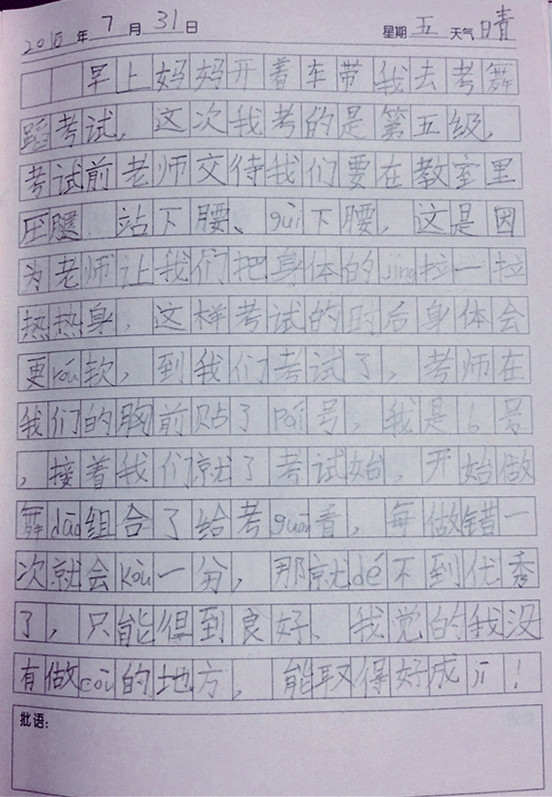 2015年7月31日 星期五 天气晴
早上妈妈开着车带我去考舞
蹈考试。这次我考的是第五级,
考试前老师交待我们要在教室里
压腿、站下腰、guì下腰,这是因
为老师让我们把身体的jīng拉一拉
热热身,这样考试的时后身体会
更róu软,到我们考试了,考师在
我们的胸前贴了pái号,我是6号
,接着我们就了考试始,开始做
舞dǎo组合了给考guān看,每做错一
次就会kòu一分,那就dé不到优秀
了,只能但到良好、我觉的我没
有做cōu的地方,能取得好成jī!
批语: